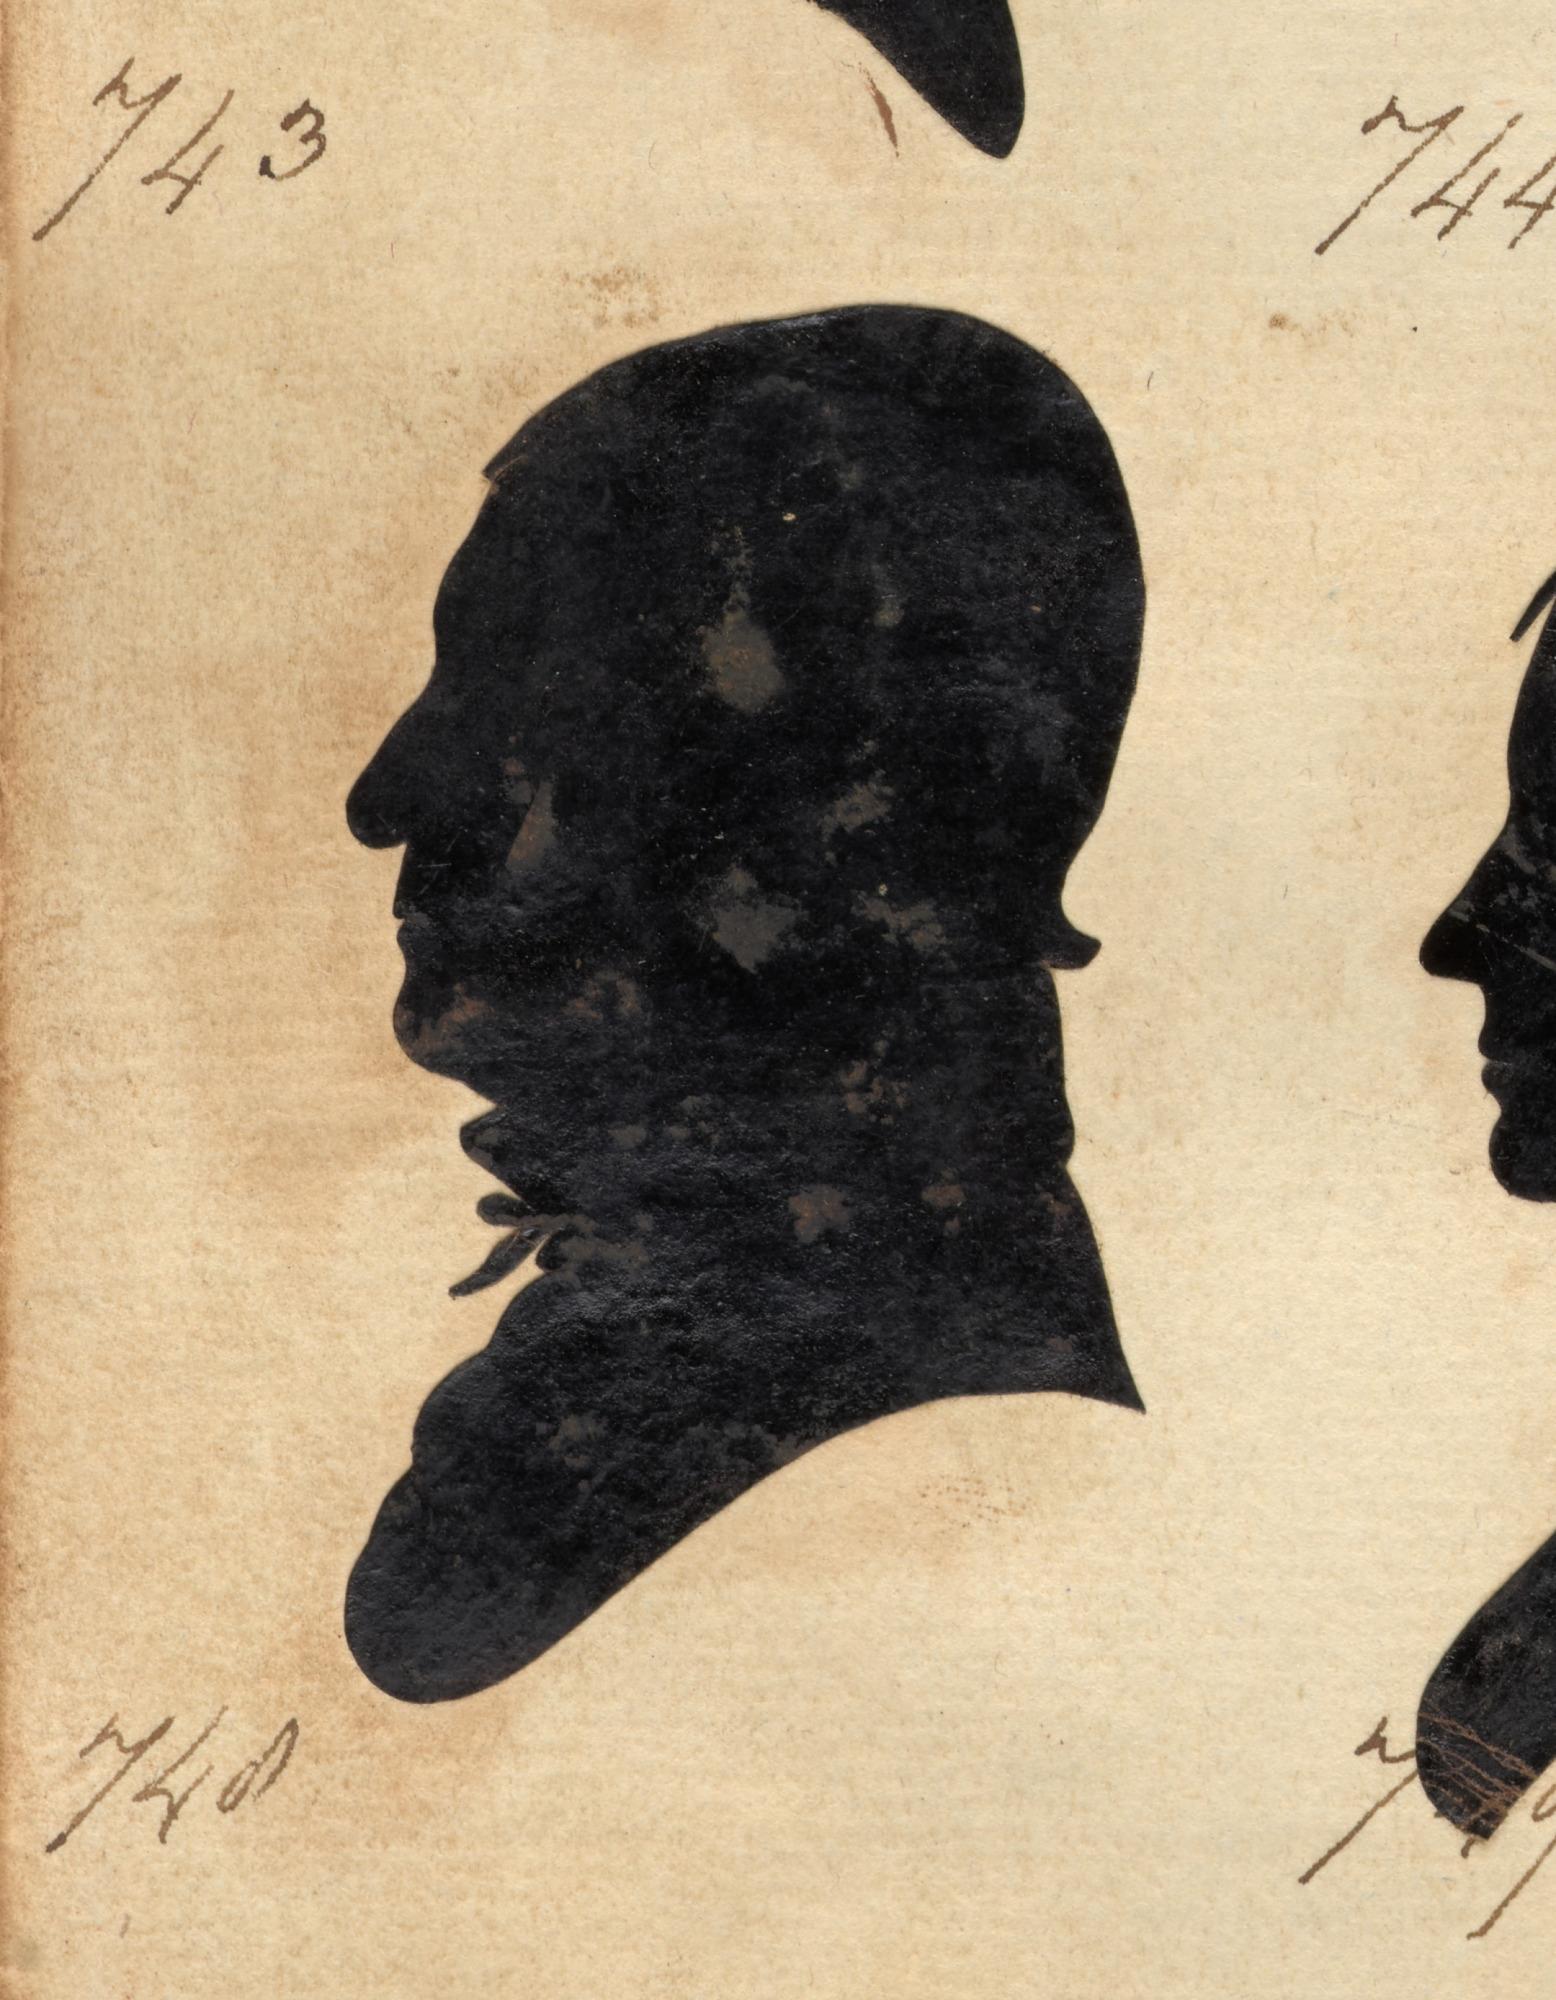 743
744
748